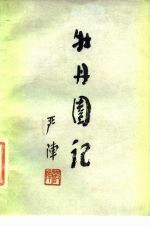 牡丹園记
严阵